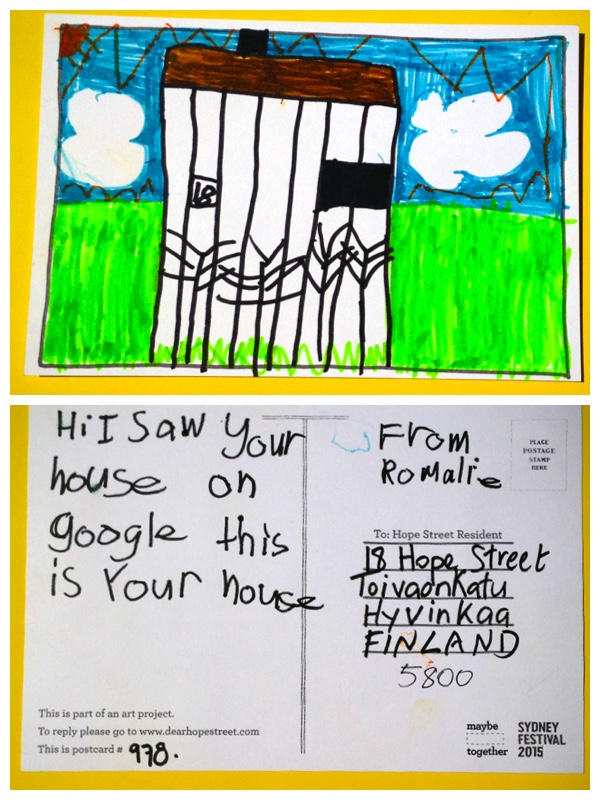 18
Hi I Saw Your
house on
google this
is Your house
From
Romalie
PLACE
POSTAGE
STAMP
HERE
To: Hope Street Resident
18 Hope Street
Toivaonkatu
Hyvinkaa
FINLAND
5800
This is part of an art project.
To reply please go to www.dearhopestreet.com
This is postcard # 978.
maybe
together
SYDNEY
FESTIVAL
2015